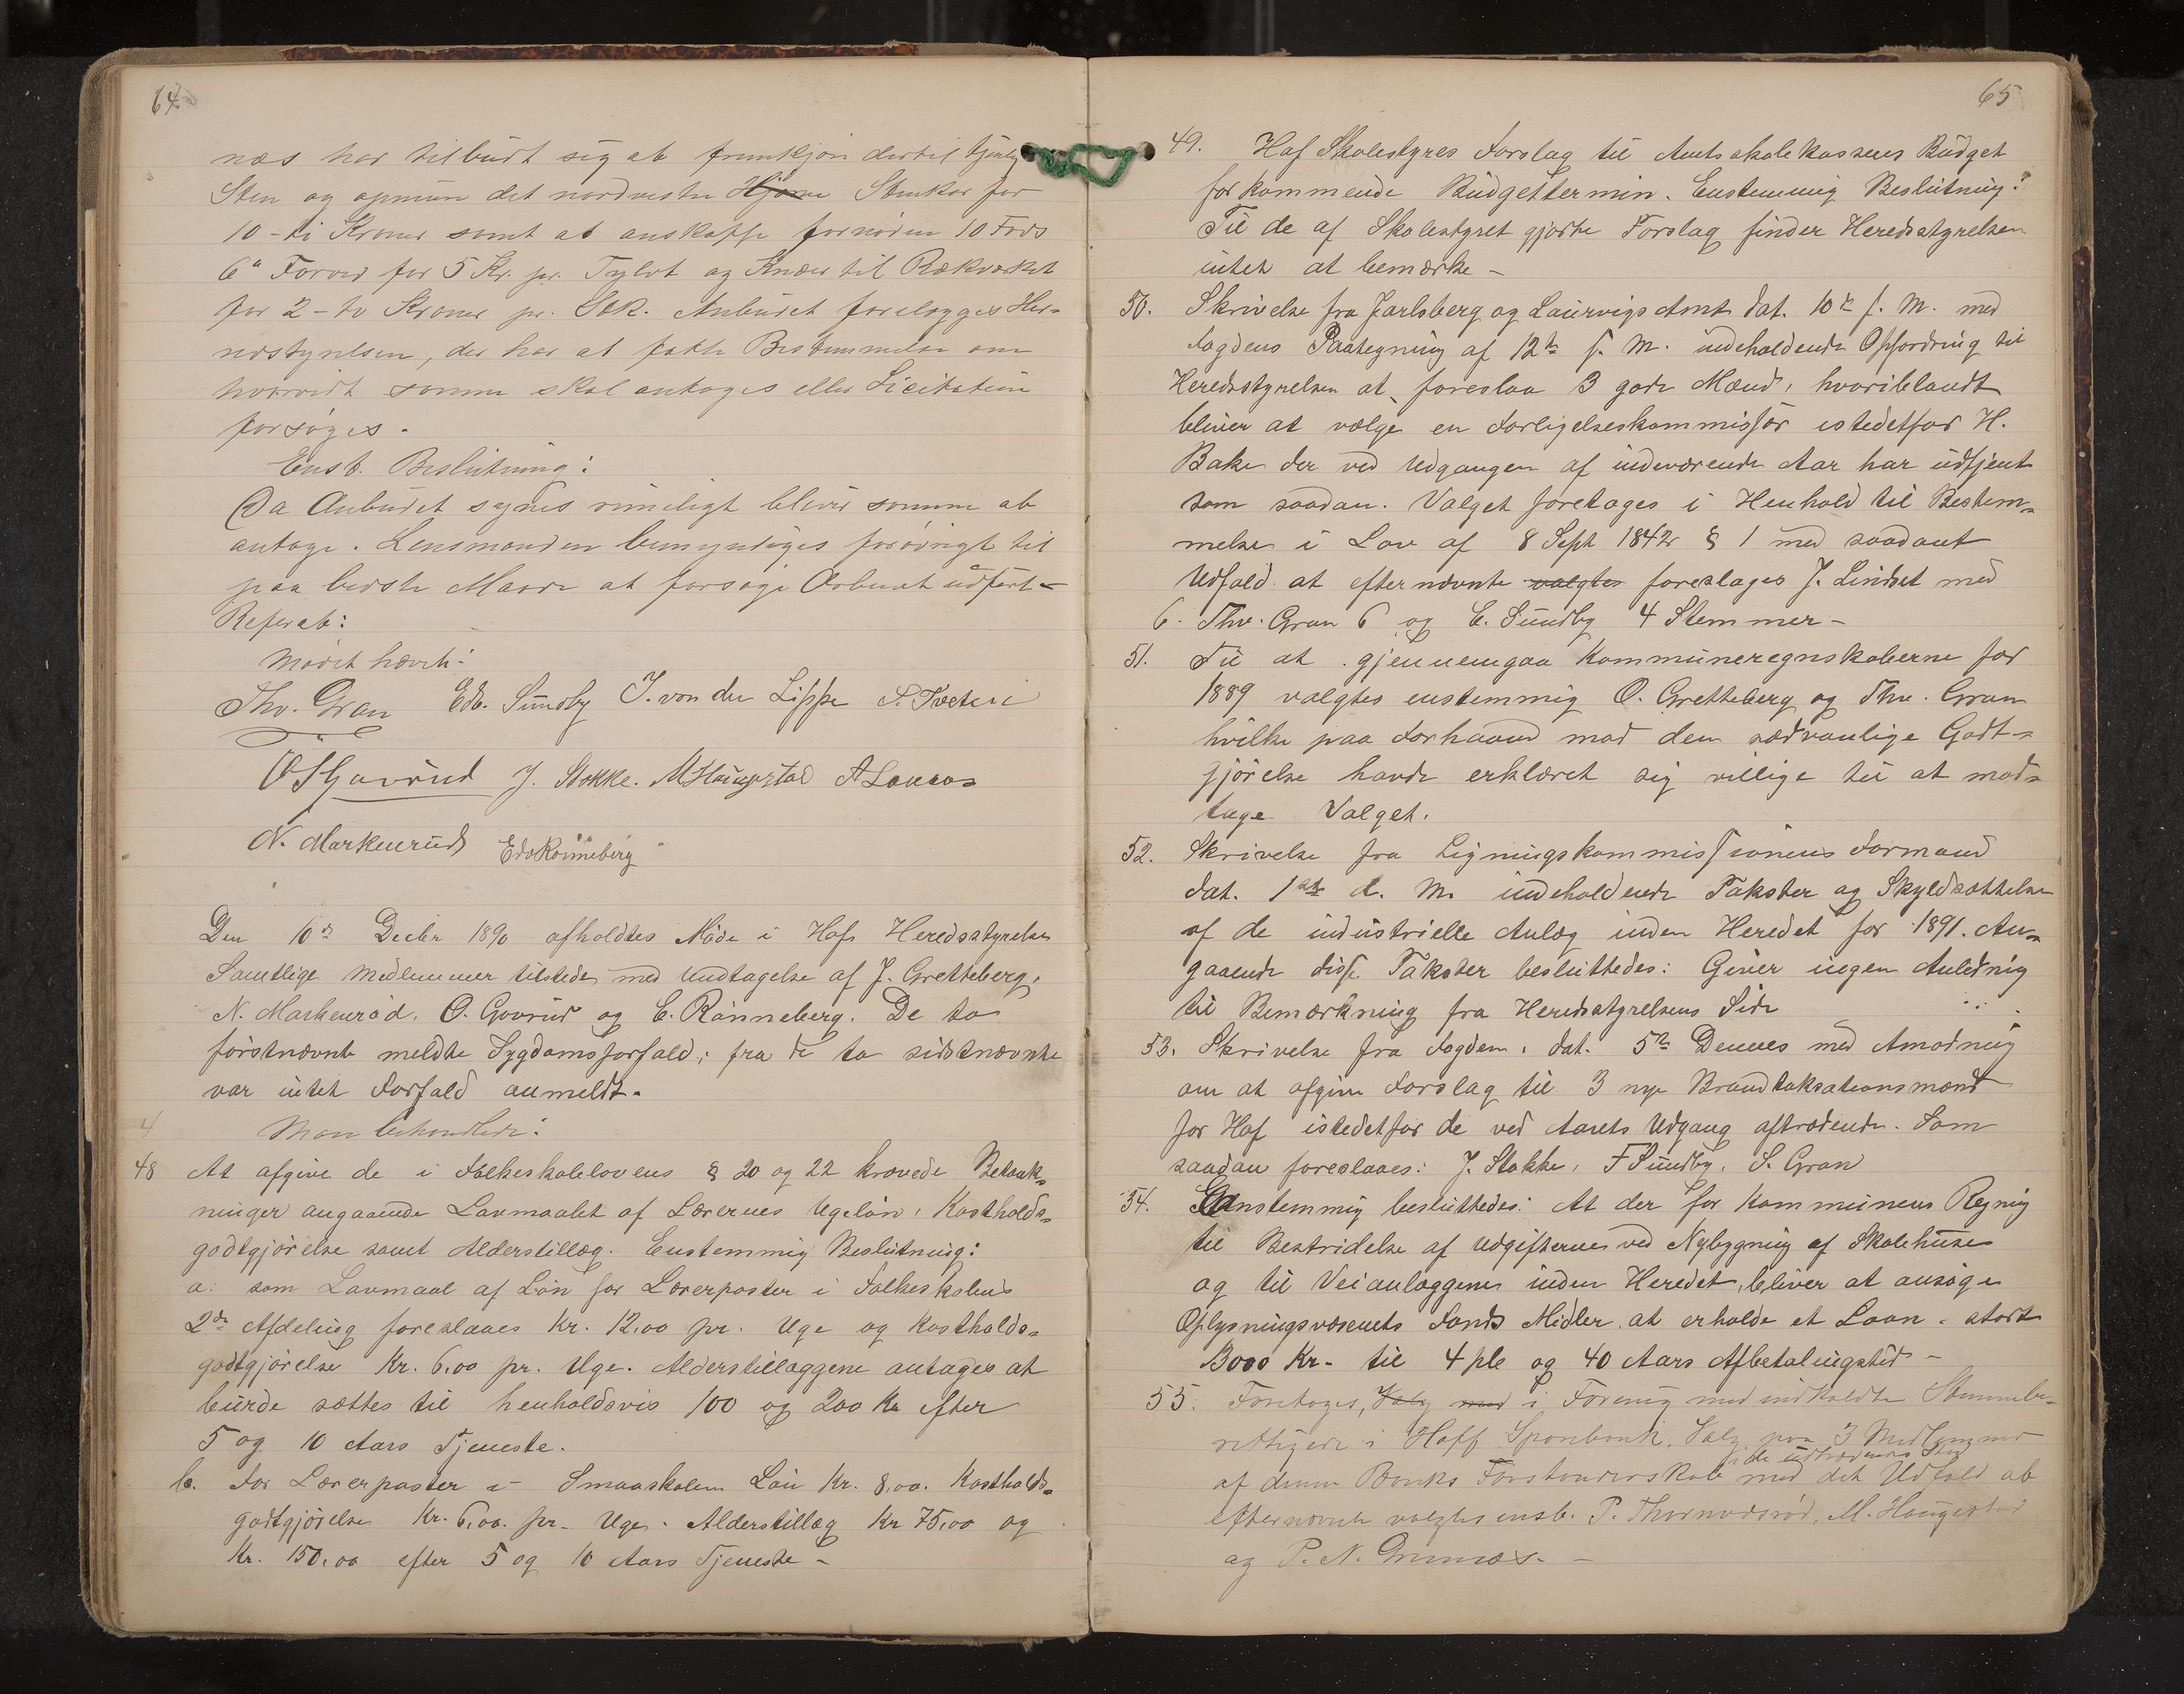 64
næs har tilbudt sig at fremkjøre dertil tjenlig
Sten og opmure det nordvestre Hjørne Stenkar for
10 - ti Kroner samt at anskaffe fornøden 10 Fods
6" Forved for 5 Kr. pr. Tylvt og Knæer til Rækværket
for 2 - to Kroner pr. Stk. Anbudet forelægges Her-
redstyrelsen, der har at fatte Bestemmelse om
hvorvidt samme skal antages eller Licitation
forsøges.
Enst. Beslutning:
Da Anbudet synes rimeligt bliver samme at
antage. Lensmanden bemyndiges forøvrigt til
paa bedste Maade at forsøge Arbeidet udført -
Referat:
Mødet hævet:
Thv. Gran Edv. Sundby J. von der Lippe
O Govrud J. Stokke. M Haugestad
N. Markerud Edv Rønneberg
Den 16de Decbr 1890 afholdtes Møde i Hofs Heredsstyrelse
Samtlige Medlemmer tilstede med Undtagelse af J. Gretteberg,
N. Markerud, O. Govrud og E. Rønneberg. De to
førstnævnte meldte Sygdomsforfald; fra de to sidstnævnte
var intet Forfald anmeldt.
Man behandlede:
48 At afgive de i Folkeskolelovens § 20 og 22 krævede Betænk-
ninger angaaende Lavmaalet af Lærernes Ugeløn, Kostholds-
godtgjørelse samt Alderstillæg. Enstemmig Beslutning:
a. som Lavmaal af Løn for Lærerposter i Folkeskolens
2den Afdeling foreslaaes Kr. 12,00 pr. Uge og Kostholds-
godtgjørelse Kr. 6,00 pr. Uge. Alderstillæggene antages at
burde sættes til henholdsvis 100 og 200 Kr efter
5 og 10 Aars Tjeneste.
b. For Lærerposter i Smaaskolen Løn Kr. 8,00. Kostholds-
godtgjørelse Kr. 6,00. pr. Uge. Alderstillæg Kr 75,00 og
Kr. 150,00 efter 5 og 10 Aars Tjeneste -
65
49. Hof Skolestyres Forslag til Amtsskolekassens Budget
for kommende Budgettermin. Enstemmig Beslutning:
Til de af Skolestyret gjorte Forslag finder Heredsstyrelsen
intet at bemærke -
50. Skrivelse fra Jarlsberg og Laurvigs Amt dat. 10de f. M. med
Fogdens Paategning af 12te f. M. indeholdende Opfordring til
Heredsstyrelsen at foreslaa 3 gode Mænd, hvoriblandt
bliver at vælge en Forligelseskommissær istedetfor H.
Bake der ved Udgangen af indeværende Aar har udtjent
som saadan. Valget foretages i Henhold til Bestem-
melse i Lov af 8 Sept 1842 § 1 med saadant
Udfald at efternævnte valgtes foreslages J. Lindset med
6. Thv. Gran 6 og E. Sundby 4 Stemmer -
51. Til at gjennemgaa Kommuneregnskaberne for
1889 valgtes enstemmig O. Gretteberg og Thv. Gran
hvilke paa Forhaand mod den sædvanlige Godt-
gjørelse havde erklæret sig villige til at mod-
tage Valget.
52. Skrivelse fra Ligningskommissionens Formand
dat. 1ste d. M. indeholdende Takster og Skyldsættelse
af de industrielle Anlæg inden Heredet for 1891. An-
gaaende disse Takster besluttedes: Giver ingen Anledning
til Bemærkning fra Heredsstyrelsens Side
53. Skrivelse fra Fogden, dat. 5te Dennes med Amodning
om at afgive Forslag til 3 nye Brandtaksationsmænd
for Hof istedetfor de ved Aarets Udgang aftrædende. Som
saadan foreslaaes: J. Stokke, F Sundby, S. Gran
54. Enstemmig besluttedes: At der for Kommunens Regning
til Bestridelse af Udgifterne ved Nybygning af Skolehuse
og til Veianlæggene inden Heredet, bliver at ansøge
Oplysningsvæsenets Fonds Midler at erholde et Laan - stort
3000 Kr - til 4 % og 40 Aars Afbetalingstid -
55. Foretoges, Valg med i Forening med indkaldte Stemmebe-
rettigede i Hoff Sparebank, Valg paa 3 Medlemmer
i de udtrædendes Sted
af denne Banks Forstanderskab med det Udfald at
efternævnte valgtes enst. P. Thormodsrød, M. Haugestad
og P. N. Grennes. -